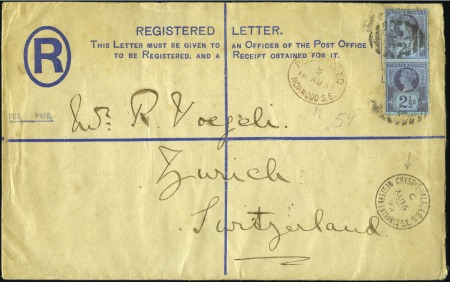 REGISTERED LETTER.
THIS LETTER MUST BE GIVEN TO AN OFFICER OF THE POST OFFICE
TO BE REGISTERED, AND A RECEIPT OBTAINED FOR IT.
R
2½
NORWOOD S.E.
FEE PAID.
54
Mr. R. Voegeli.
Zurich
Switzerland